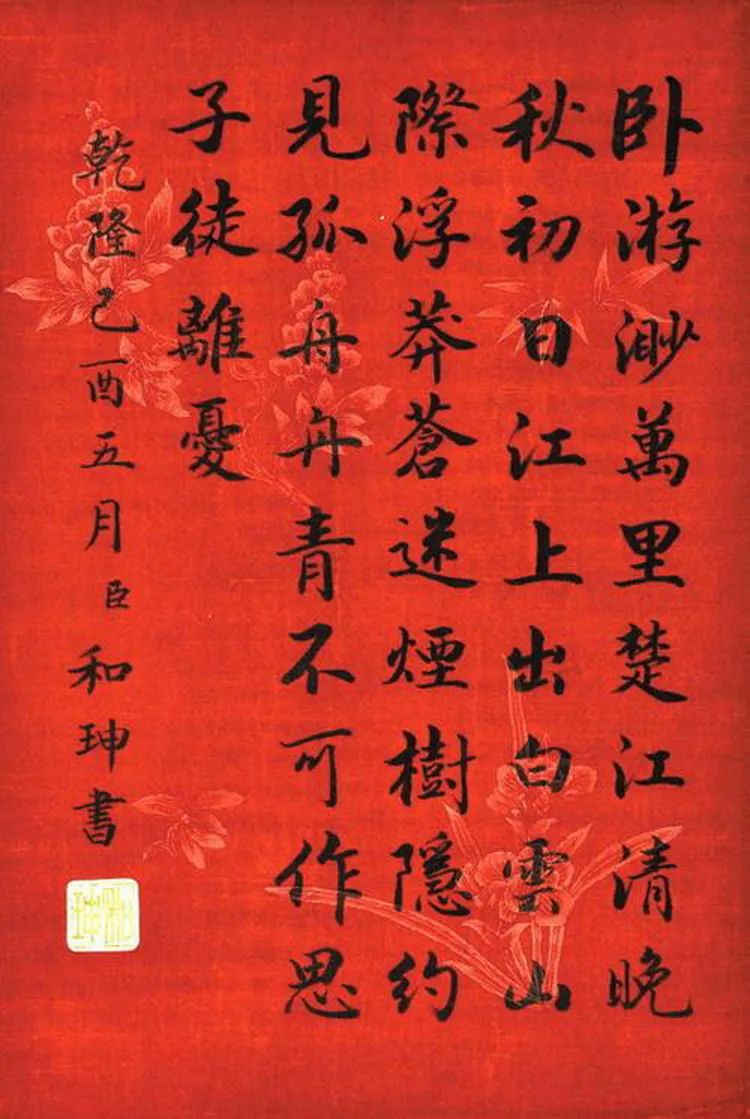 卧游渺萬里楚江清晚
秋初日江上出白雲山
際浮莽蒼迷煙樹隱約
見孤舟舟青不可作思
子徒離憂
乾隆己酉五月臣和珅書
和珅